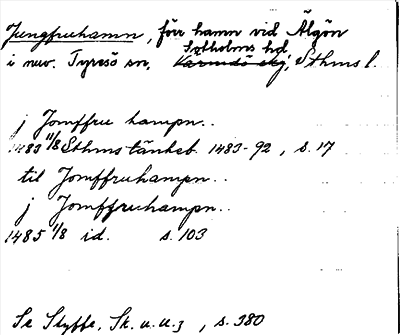 Jungfruhamn, förr hamn vid Älgön
Sotholms hd
i nuv. Tyresö sn, Värmdö skg, Sthms l.
j Jomffru hampn..
1483 11/8 Sthms tänkeb. 1483-92, s. 17
til Jomffruhampn..
j Jomffruhampn..
1485 1/8 id. s. 103
Se Styffe, Sk. u. u. 3, s. 380